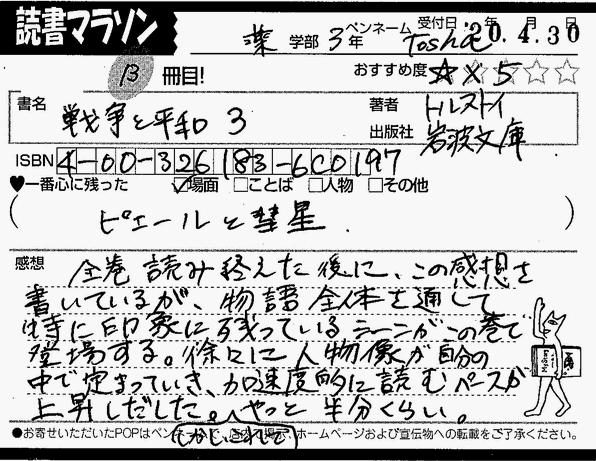 読書マラソン
薬 学部 3年
ペンネーム Toshi
受付日 '20年.4月.30日
13 冊目!
おすすめ度 ☆×5☆☆
書名
戦争と平和 3
著者 トルストイ
出版社 岩波文庫
ISBN 4-00-326183-6C0197
♥一番心に残った ☑場面 □ことば □人物 □その他
(ピエールと彗星.)
感想
全巻読み終えた後に、この感想を
書いているが、物語全体を通して
特に印象に残っているシーンがこの巻で
登場する。徐々に人物像が自分の
中で定まっていき、加速度的に読むペースが
上昇しだした。やっと半分くらい。
●お寄せいただいたPOPはペンネーム 店頭で掲示、ホームページおよび宣伝物への転載をご了承ください。